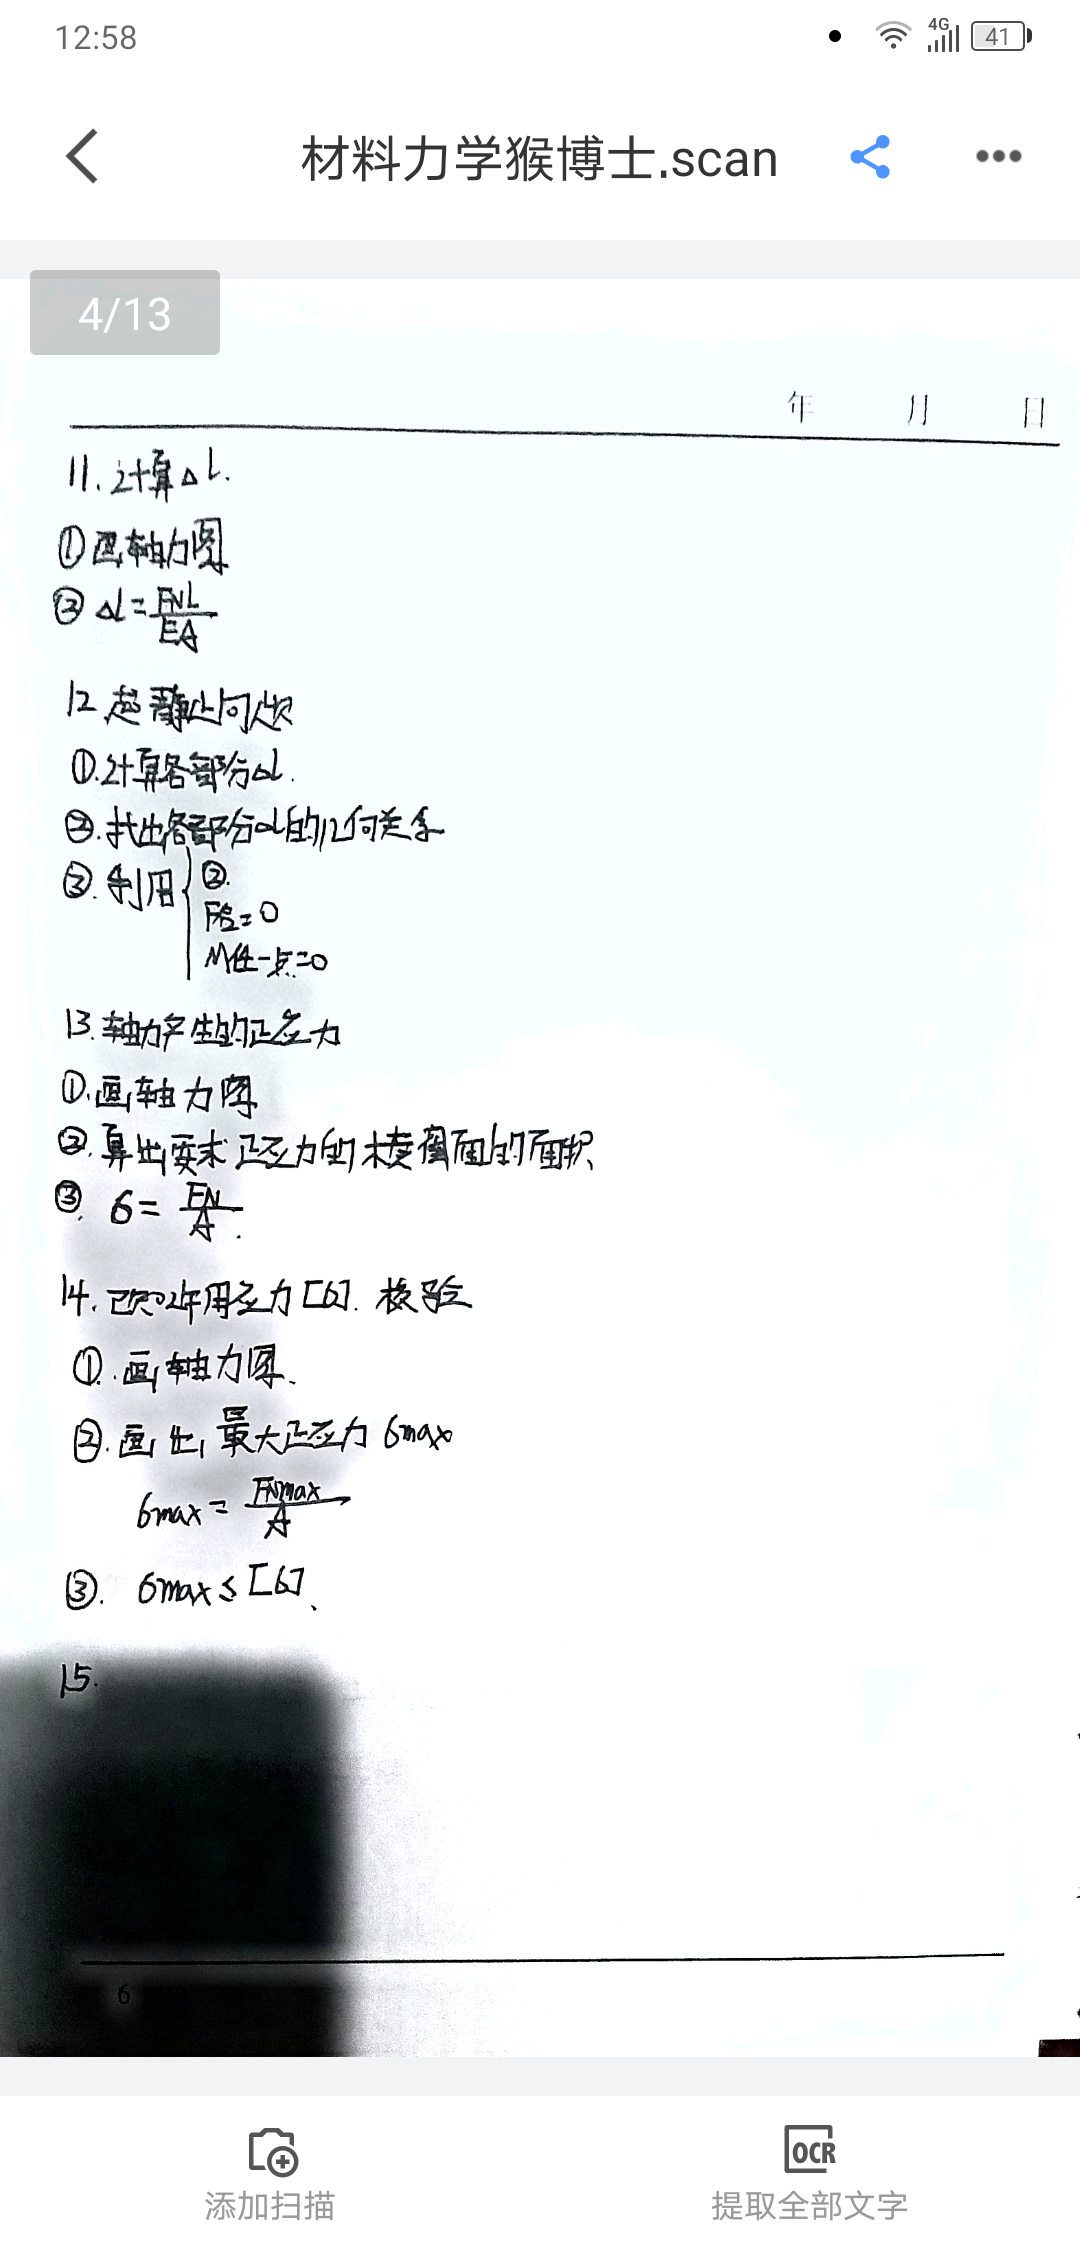 12:58
4G
41
材料力学猴博士.scan
4/13
年 月 日
11.计算△l.
①画轴力图
② △l=FNL/EA
12.超静止问题
①.计算各部分△l.
②.找出各部分△l的几何关系
③.利用{②.
F合=0
M任一点=0
13.轴力产生的正应力
①.画轴力图
②.算出要求正应力的横截面的面积
③. 6=FN/A.
14.已知许用应力[6].校验
①.画轴力图.
②.画出最大正应力6max
6max=FNmax/A
③. 6max≤[6].
15.
6
添加扫描
OCR
提取全部文字